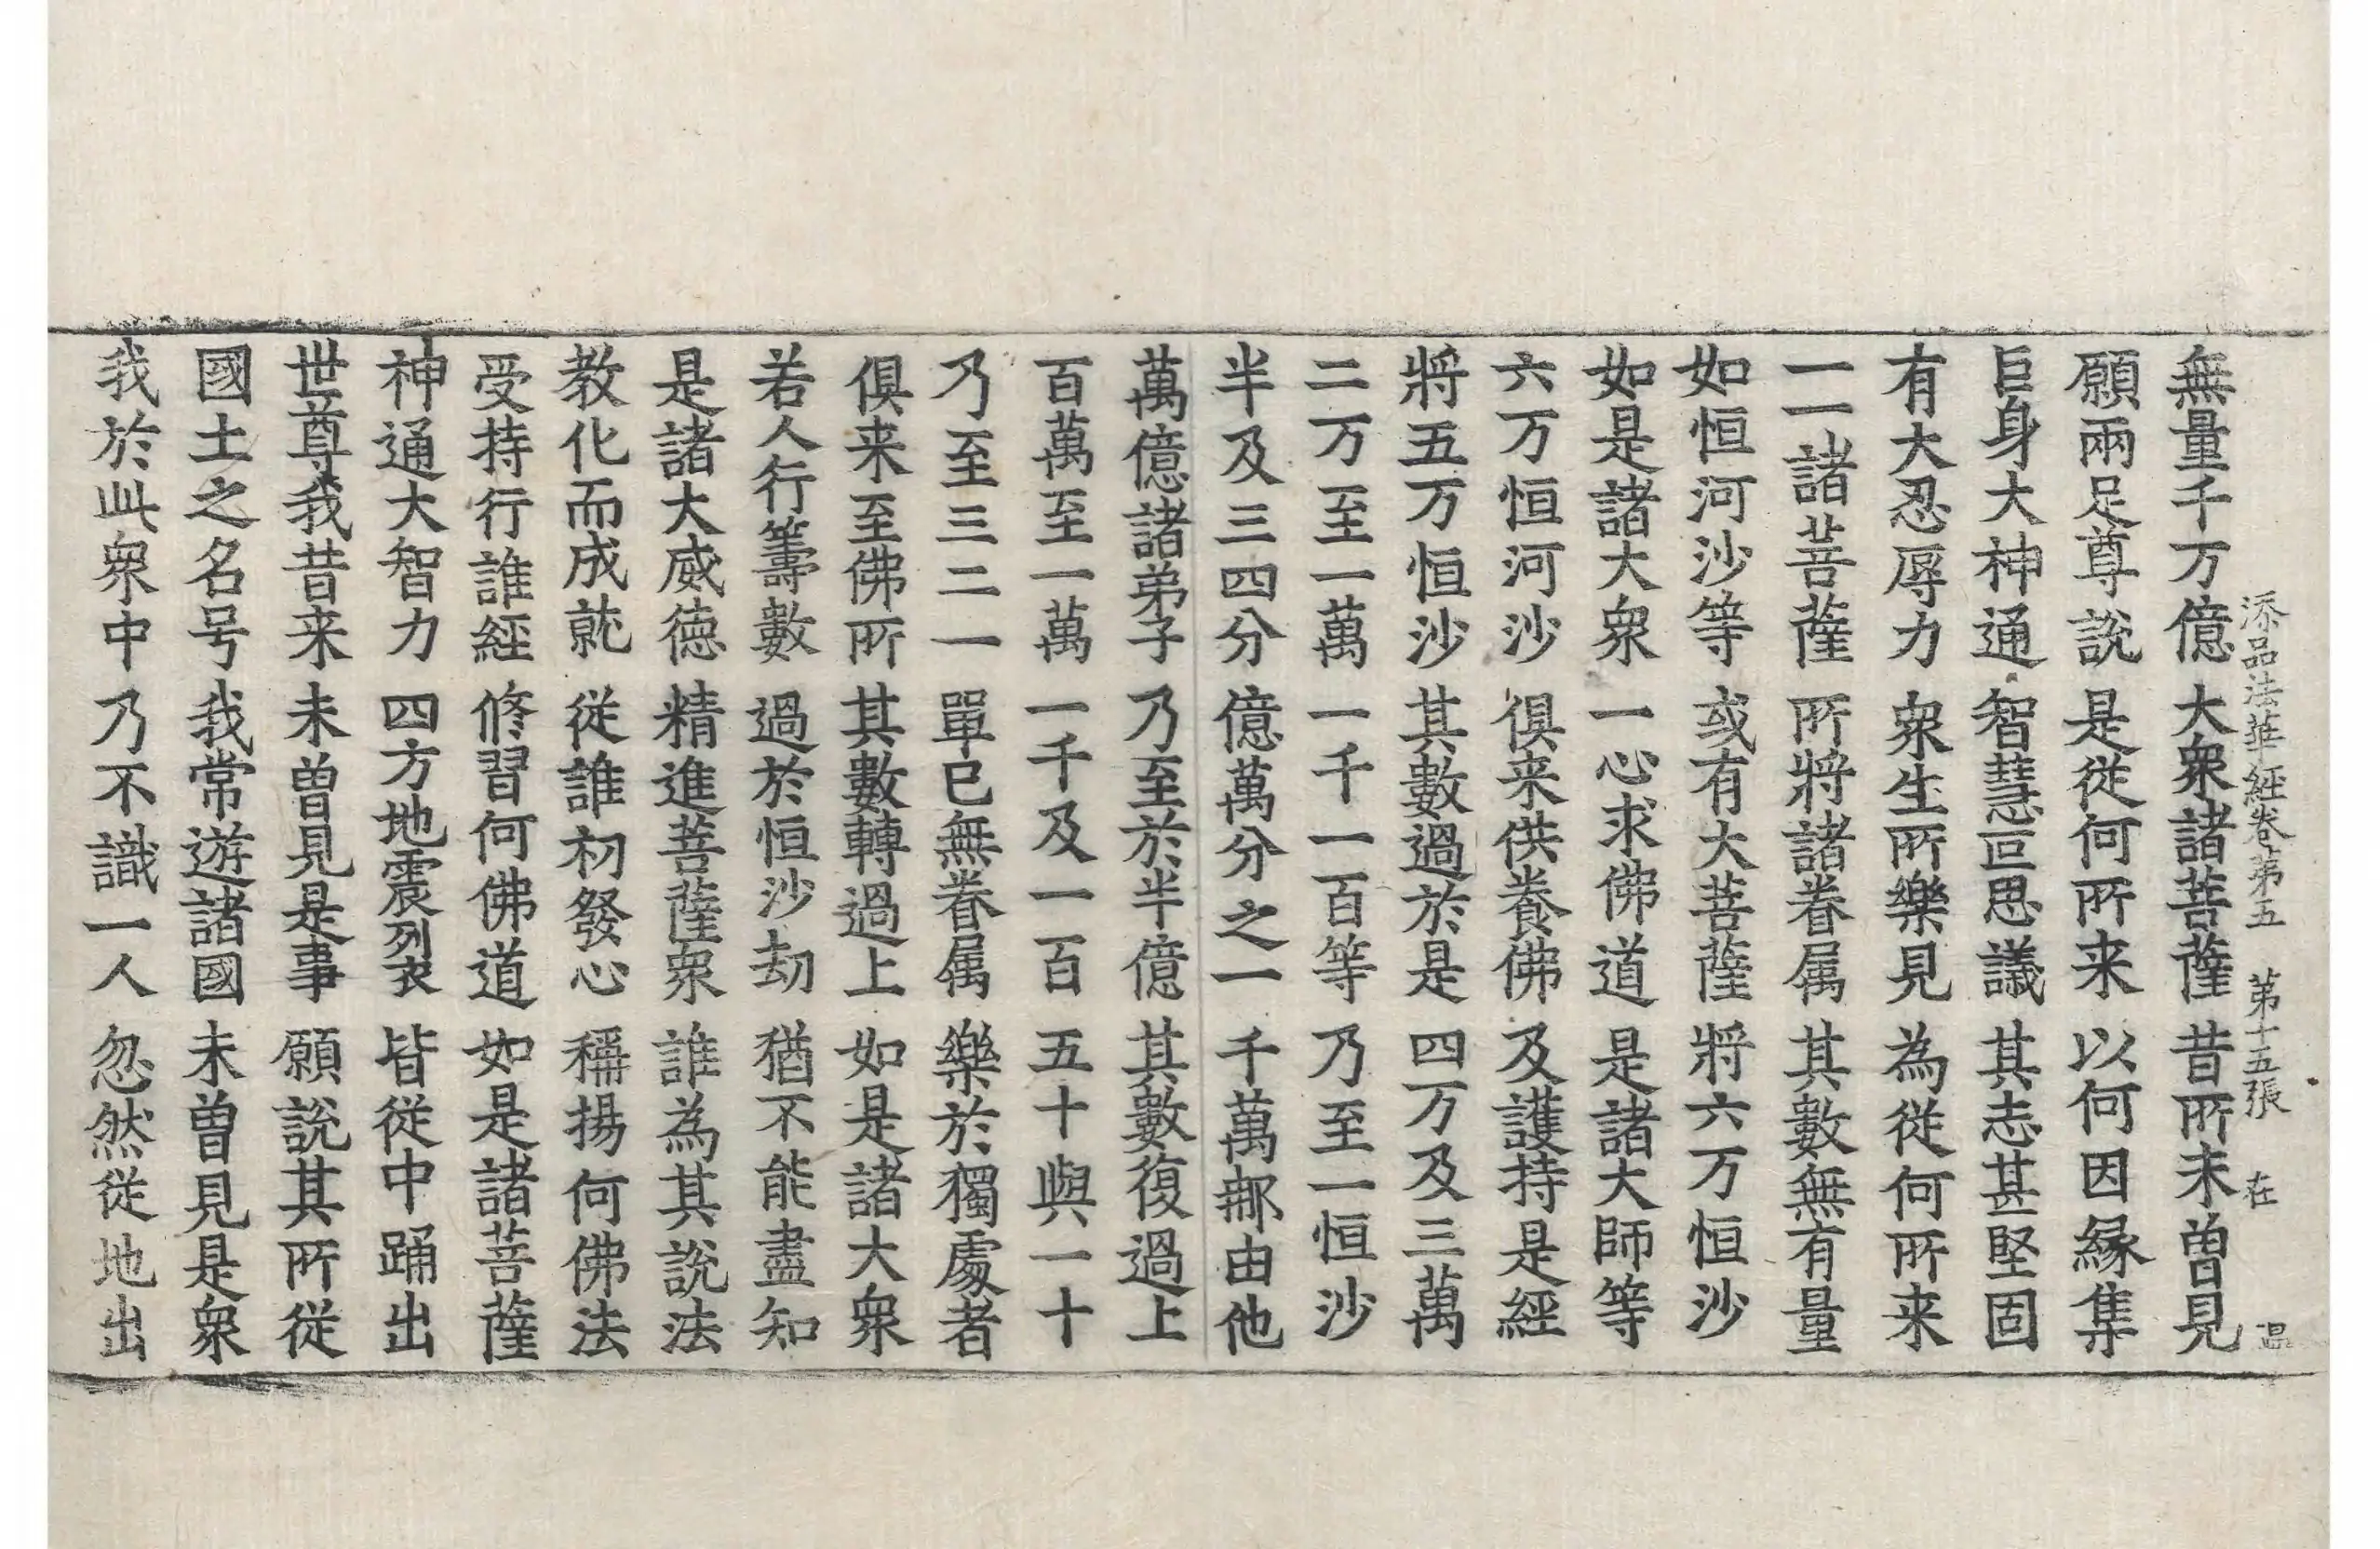 無量千万億 大衆諸菩薩 昔所未曽見
添品法華經卷第五 第十五張 在 温
願兩足尊說 是従何所来 以何因縁集
巨身大神通 智慧叵思議 其志甚堅固
有大忍辱力 衆生所樂見 為従何所来
一一諸菩薩 所將諸眷属 其數無有量
如恒河沙等 或有大菩薩 將六万恒沙
如是諸大衆 一心求佛道 是諸大師等
六万恒河沙 俱来供養佛 及護持是經
將五万恒沙 其數過於是 四万及三萬
二万至一萬 一千一百等 乃至一恒沙
半及三四分 億萬分之一 千萬那由他
萬億諸弟子 乃至於半億 其數復過上
百萬至一萬 一千及一百 五十與一十
乃至三二一 單已無眷属 樂於獨處者
俱来至佛所 其數轉過上 如是諸大衆
若人行籌數 過於恒沙劫 猶不能盡知
是諸大威徳 精進菩薩衆 誰為其說法
教化而成就 従誰初發心 稱揚何佛法
受持行誰經 修習何佛道 如是諸菩薩
神通大智力 四方地震裂 皆従中踊出
世尊我昔来 未曽見是事 願說其所従
國土之名号 我常遊諸國 未曽見是衆
我於此衆中 乃不識一人 忽然従地出